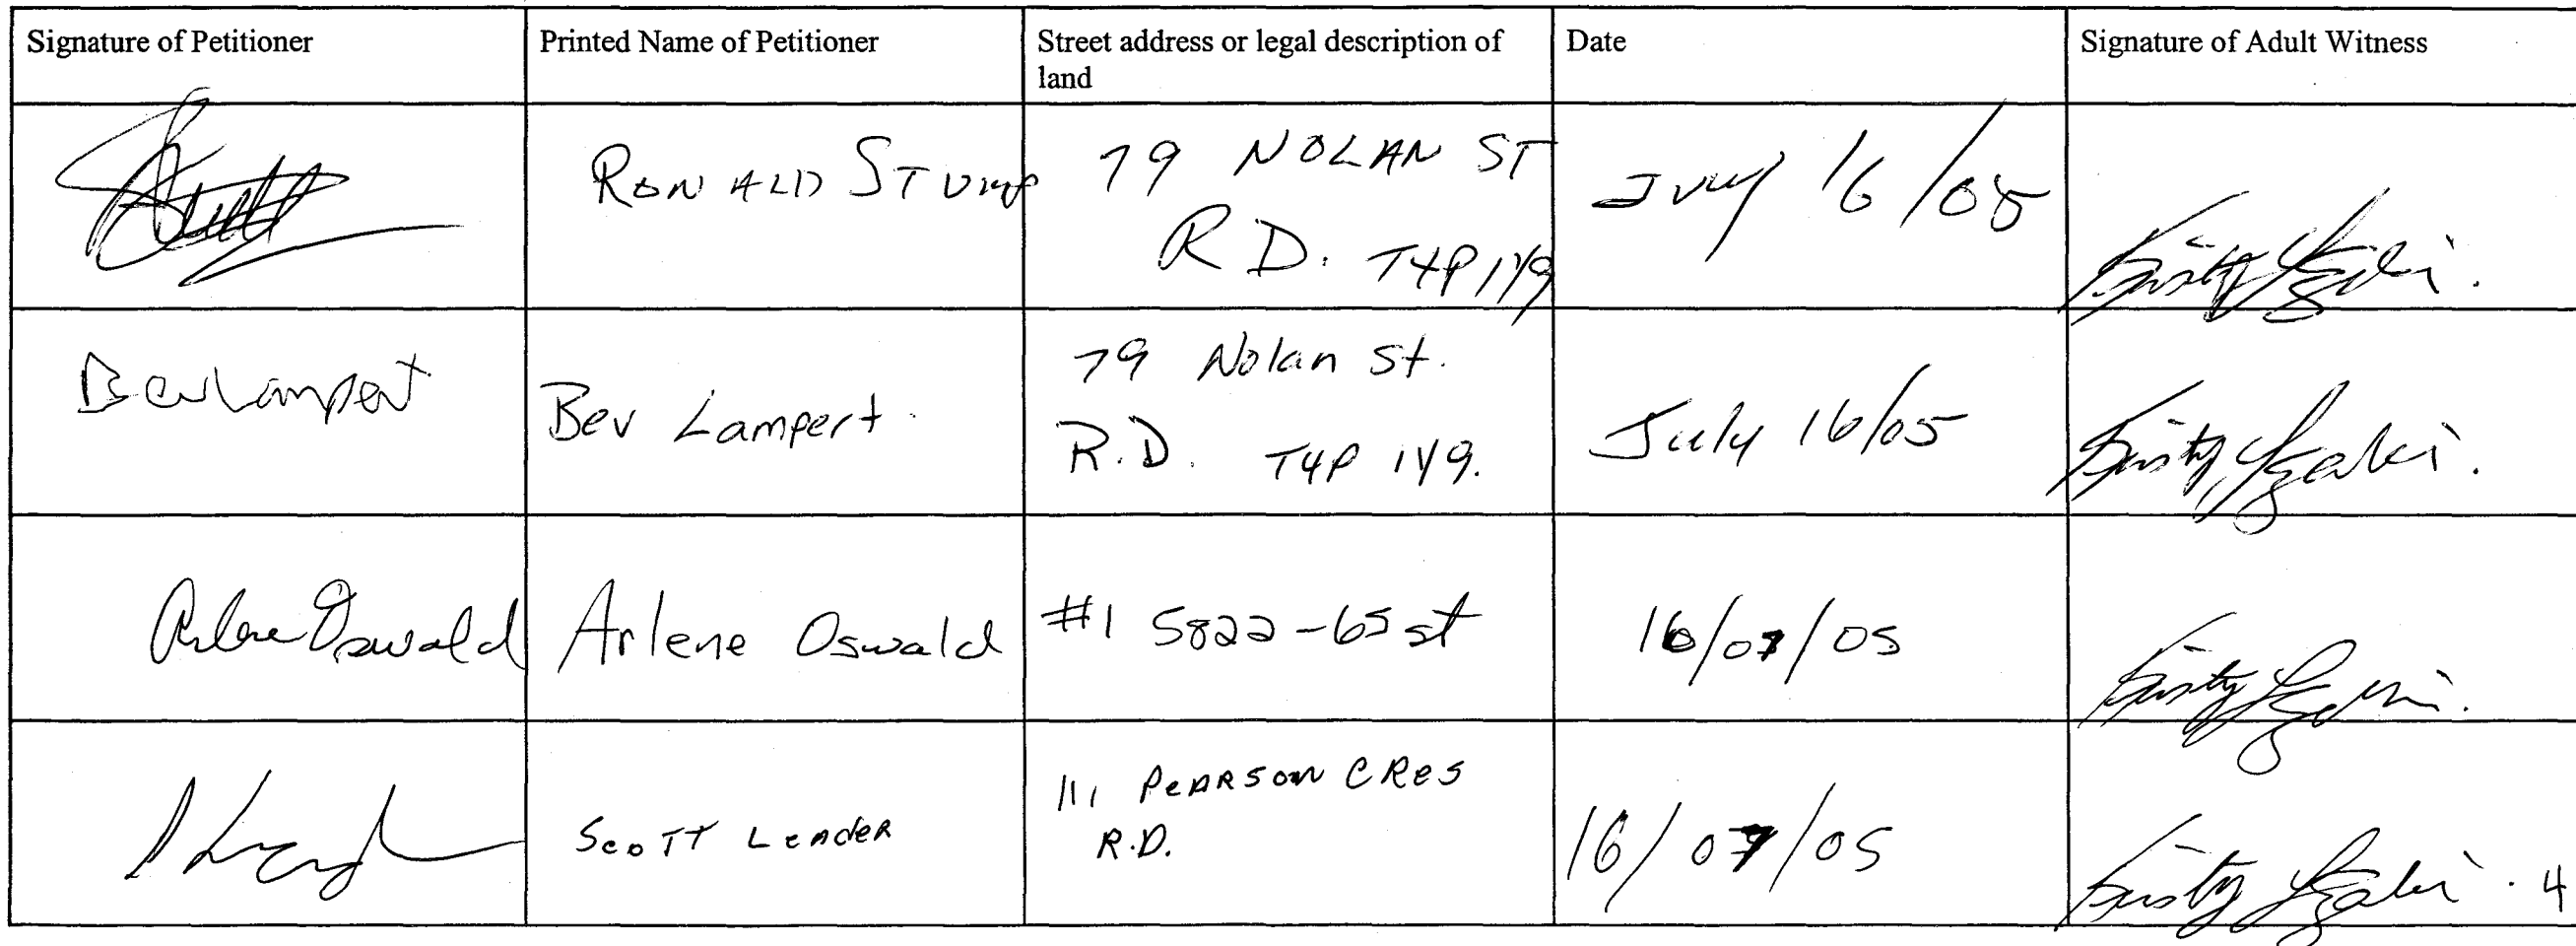 Signature of Petitioner
Printed Name of Petitioner
Street address or legal description of
land
Date
Signature of Adult Witness
RONALD STUMP
79 NOLAN ST
R D. T4P 1Y9
July 16/05
Bev Lampert
Bev Lampert.
79 Nolan St.
R.D. T4P 1Y9.
July 16/05
Kirsty
Arlene Oswald
Arlene Oswald
#1 5822-65 st
16/07/05
Kirsty
Scott Leader
111 Pearson Cres
R.D.
16/07/05
Kirsty
4